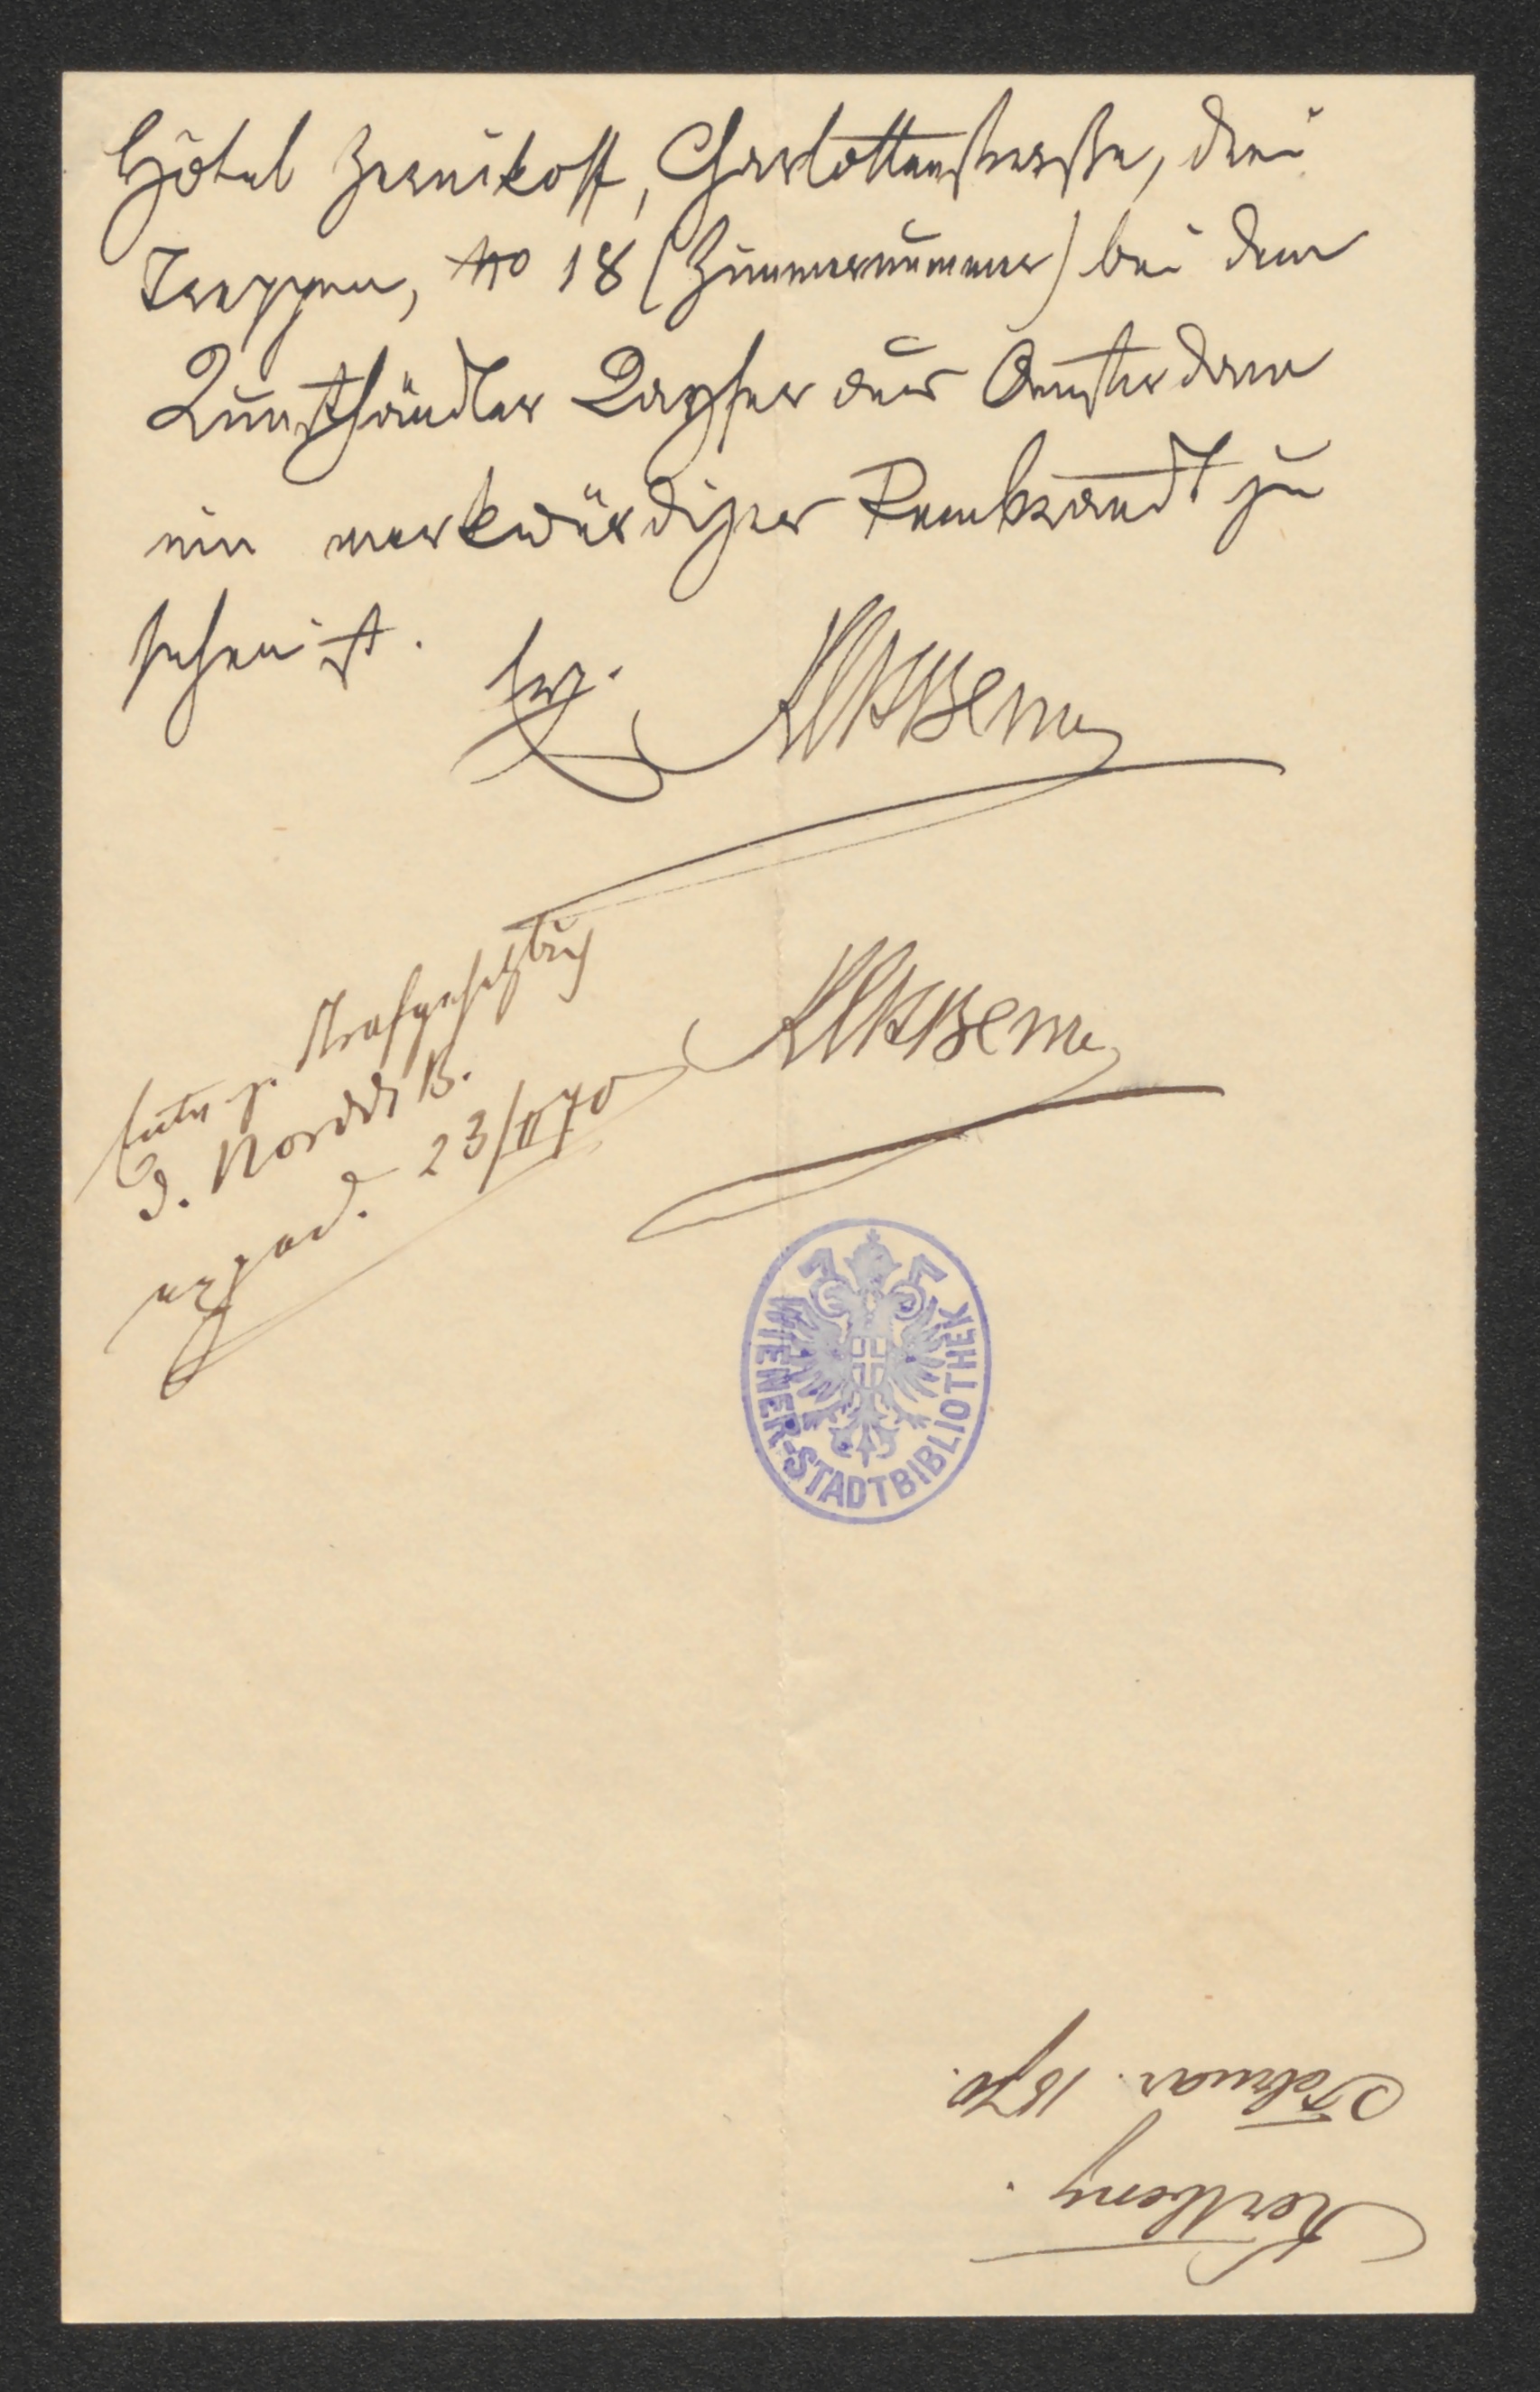 Hôtel Zernikoff, Charlottenstraße, drei
Treppen, No 18 (Zimmernummer) bei dem
Kunsthändler aus Amsterdam
ein merkwürdiger Rembrandt zu
sehen ist.
Strafgesetzbuch
d. Nordd. B.
23/II 70
WIENER-STADTBIBLIOTHEK
Kertbeny.
Februar. 1870.